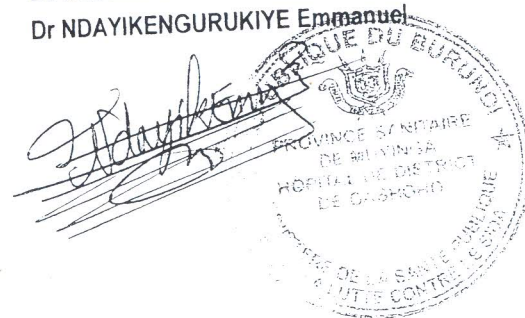 Dr NDAYIKENGURUKIYE Emmanuel
REPUBLIQUE DU BURUNDI
PROVINCE SANITAIRE
DE MUYINGA
HOPITAL DE DISTRICT
DE GASHOHO
MINISTERE DE LA SANTE PUBLIQUE
LUTTE CONTRE SIDA